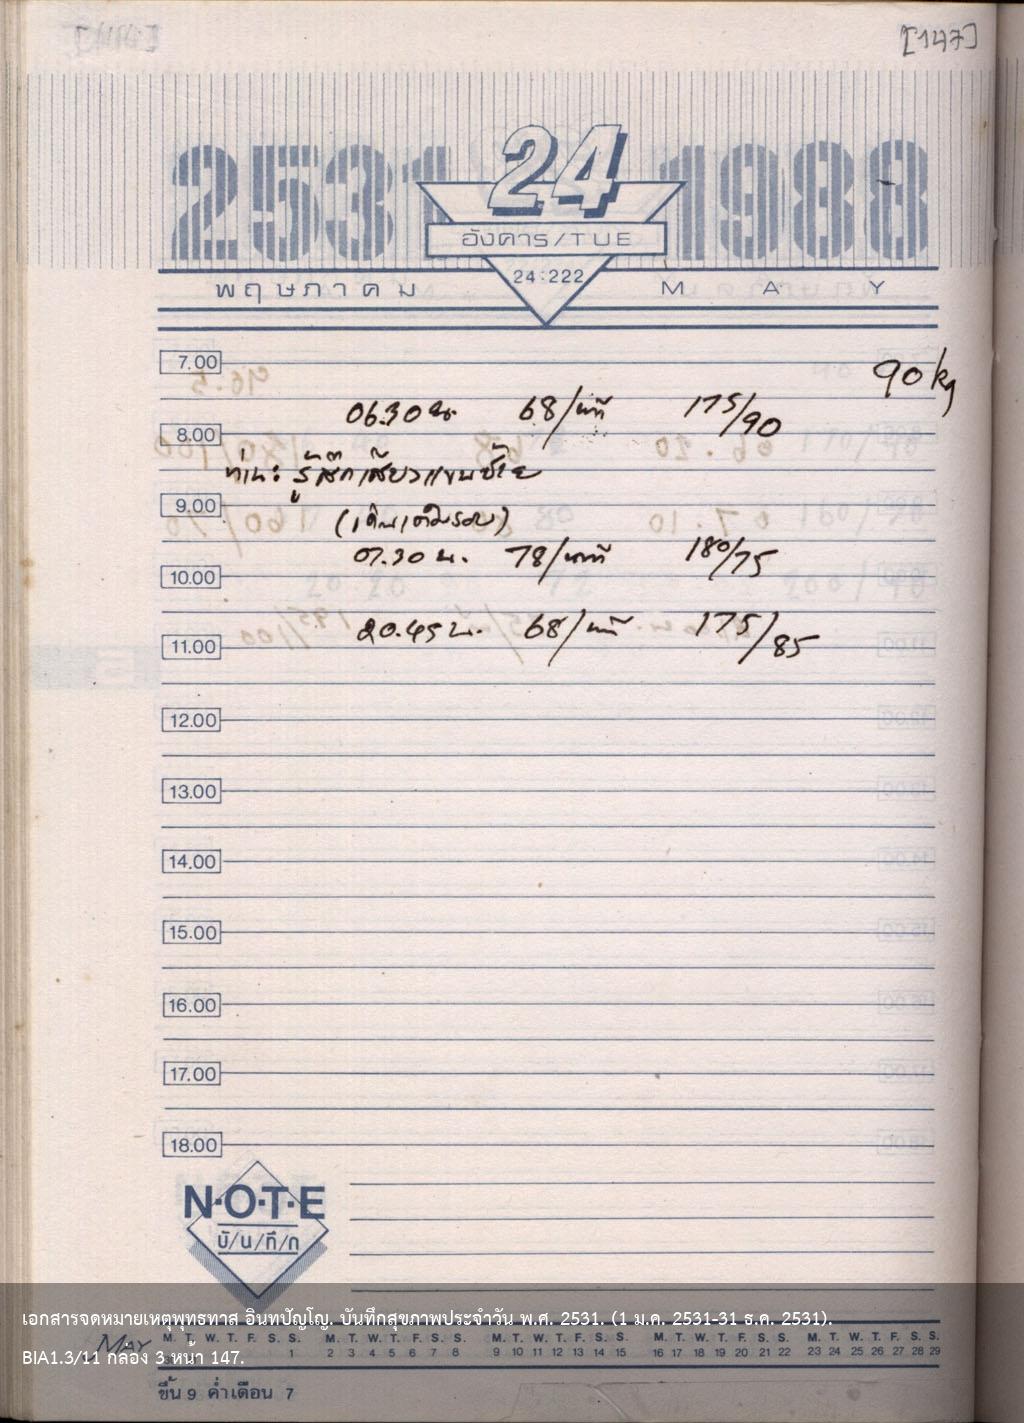 [147]
2531 24 1988
อังคาร/TUE
24:222
พฤษภาคม MAY
7.00
90 kg
06.30 น. 68/นาที 175/90
8.00
ท่าน: รู้สึกเสียวแขนซ้าย
9.00
07.30 น. 78/นาที 180/75
10.00
20.45 น. 68/นาที 175/85
11.00
12.00
13.00
14.00
15.00
16.00
17.00
18.00
N·O·T·E
บั/น/ทึ/ก
เอกสารจดหมายเหตุพุทธทาส อินทปัญโญ. บันทึกสุขภาพประจำวัน พ.ศ. 2531. (1 ม.ค. 2531-31 ธ.ค. 2531).
MAY M. T. W. T. F. S. S. M. T. W. T. F. S. S. M. T. W. T. F. S. S. M. T. W. T. F. S. S. M. T. W. T. F. S. S.
1 2 3 4 5 6 7 8 9 10 11 12 13 14 15 16 17 18 19 20 21 22 23 24 25 26 27 28 29
BIA1.3/11 กล่อง 3 หน้า 147.
ขึ้น 9 ค่ำเดือน 7